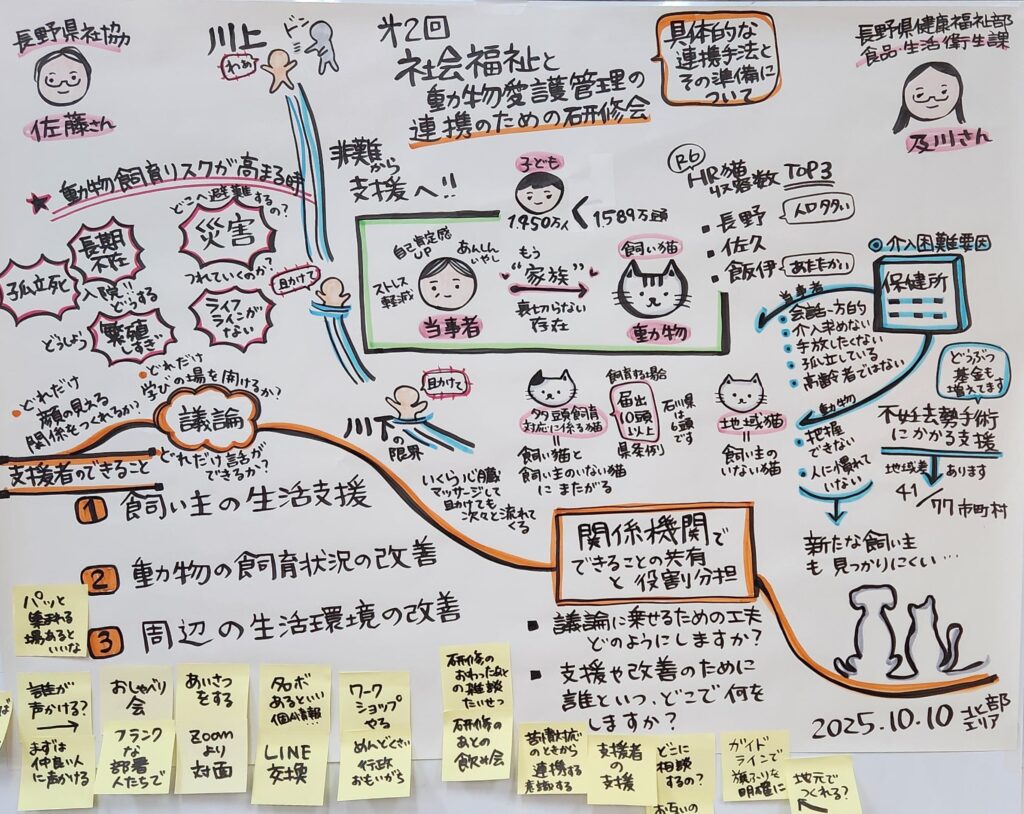 長野県社協
佐藤さん
川上
ドン
わあ
第2回
社会福祉と
動物愛護管理の
連携のための研修会
具体的な
連携手法と
その準備に
ついて
長野県健康福祉部
食品・生活衛生課
及川さん
動物飼育リスクが高まる時
どこへ避難するの?
長期
不在
災害
孤立死
入院!!
どうする
つれていくのか?
どうしよう
繁殖
しすぎ
ライフ
ラインが
ない
非難から
支援へ!!
助けて
助けて
川下の
限界
いくら心臓
マッサージして
助けても
次々と流れて
くる
子ども
1450万人
1589万頭
自己肯定感
UP
あんしん
いやし
ストレス
軽減
当事者
もう
“家族”
裏切らない
存在
飼い猫
動物
R6
HR猫
収容数 TOP3
・長野
人口多い
・佐久
・飯伊
あたたかい
介入困難要因
保健所
当事者
会話一方的
介入求めない
手放したくない
孤立している
高齢者ではない
動物
把握
できない
人に慣れて
いない
どうぶつ
基金も
増えてます
不妊去勢手術
にかかる支援
地域差
あります
41/77市町村
新たな飼い主
も見つかりにくい…
多頭飼育
対応に係る猫
=
飼い猫と
飼い主のいない猫
にまたがる
飼育する場合
届出
10頭
以上
県条例
石川県
は
6頭です
地域猫
=
飼い主の
いない猫
どれだけ
顔の見える
関係をつくれるか?
どれだけ
学びの場を開けるか?
議論
どれだけ話が
できるか?
支援者のできること
1 飼い主の生活支援
2 動物の飼育状況の改善
3 周辺の生活環境の改善
関係機関で
できることの共有
と役割分担
議論に乗せるための工夫
どのようにしますか?
支援や改善のために
誰といつ、どこで何を
しますか?
2025.10.10 北部
エリア
パッと
集まれる
場あると
いいな
誰が
声かける?
まずは
仲良い人
に声かける
おしゃべり
会
フランク
な
部署
人たちで
あいさつ
をする
zoom
より
対面
名ボ
あるといい
個人情報…
LINE
交換
ワーク
ショップ
やる
めんどくさい
行政
おもいから
研修の
おわったあと
の雑談
たいせつ
研修の
あとの
飲み会
苦情対応
のときから
連携する
意識する
支援者
の
支援
どこに
相談
するの?
お互いの
ガイド
ラインで
旗ふりを
明確に
地元で
つくれる?